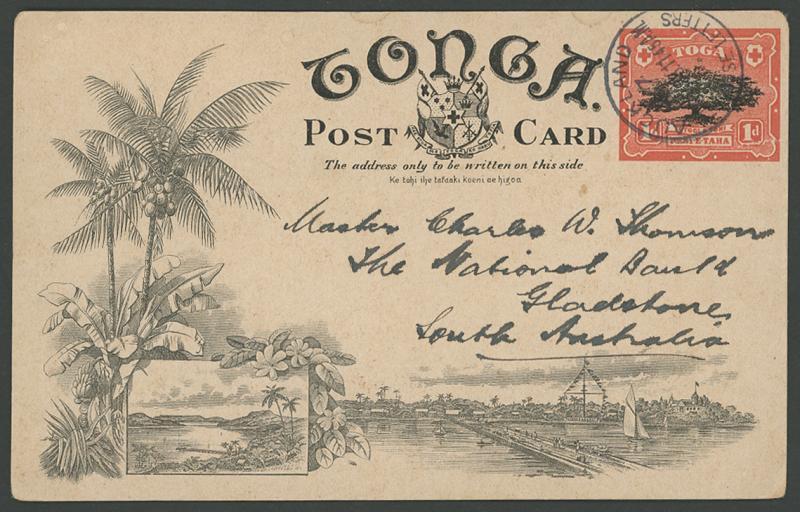 TONGA.
POST CARD
The address only to be written on this side
Ke tohi ihe tafaaki koeni ae higoa
TOGA
1d
E-TAHA 1d
LETTERS
AND
Master Charles W. Thomson
The National Bank Ld
Gladstone,
South Australia